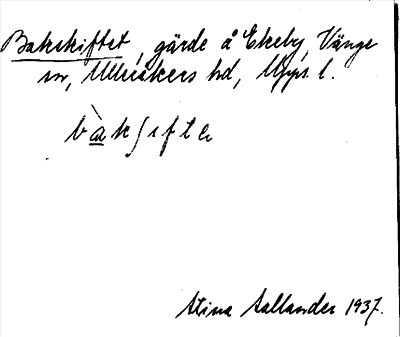 Bakskiftet, gärde å Ekeby, Vänge
sn, Ulleråkers hd, Upps. l.
bàkʃıftle
Stina Sallander 1937.